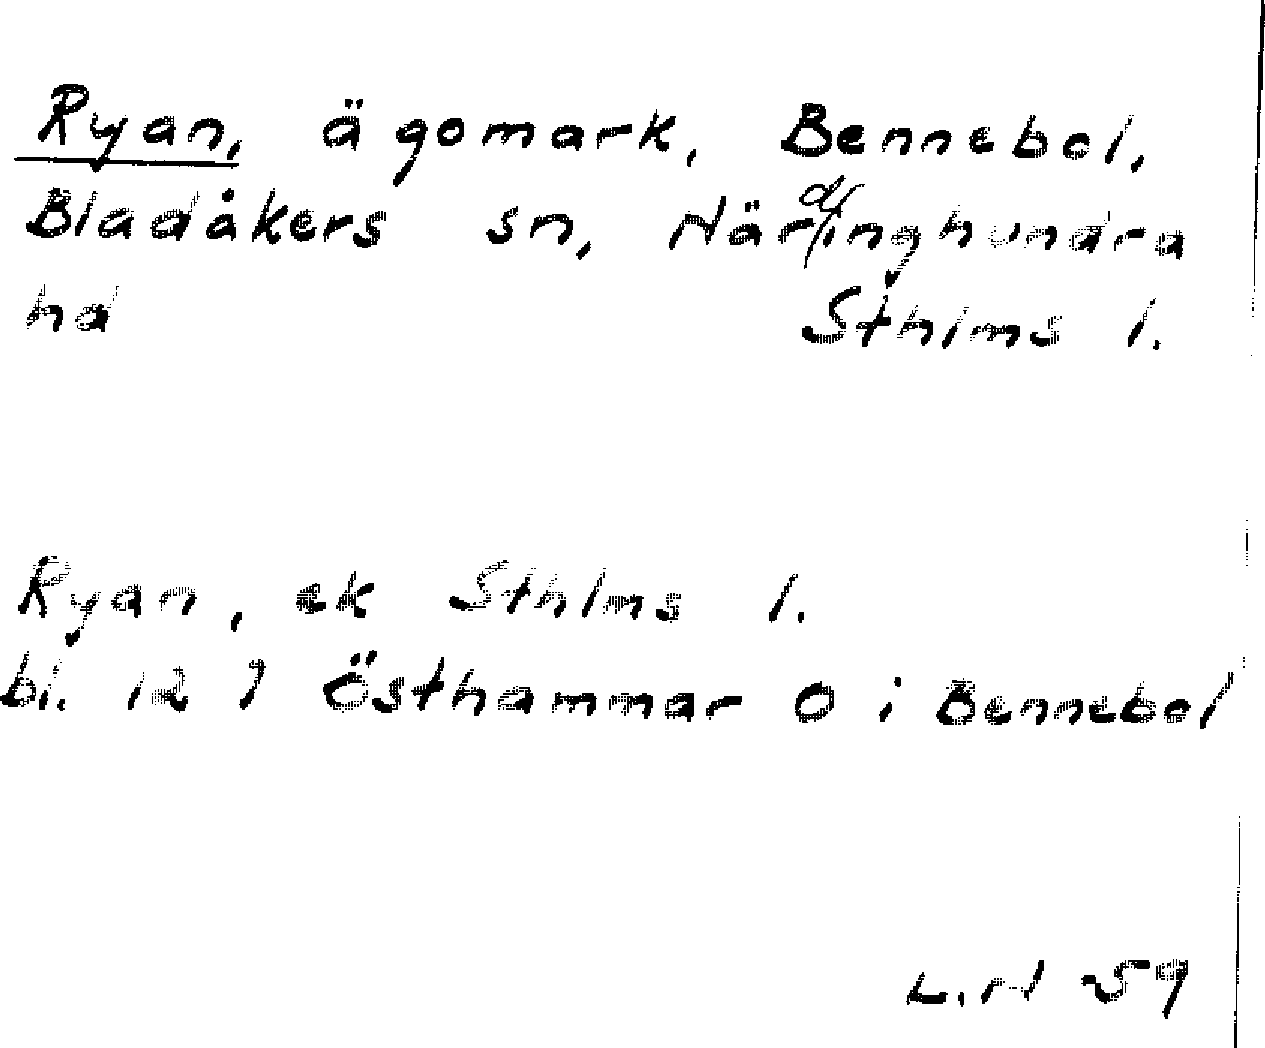 Ryan, ägomark, Bennebol,
Bladåkers sn, Närdinghundra
hd Sthlms l.
Ryan, ek Sthlms l.
bl. 12 7 Östhammar O i Bennebol
L.N 59